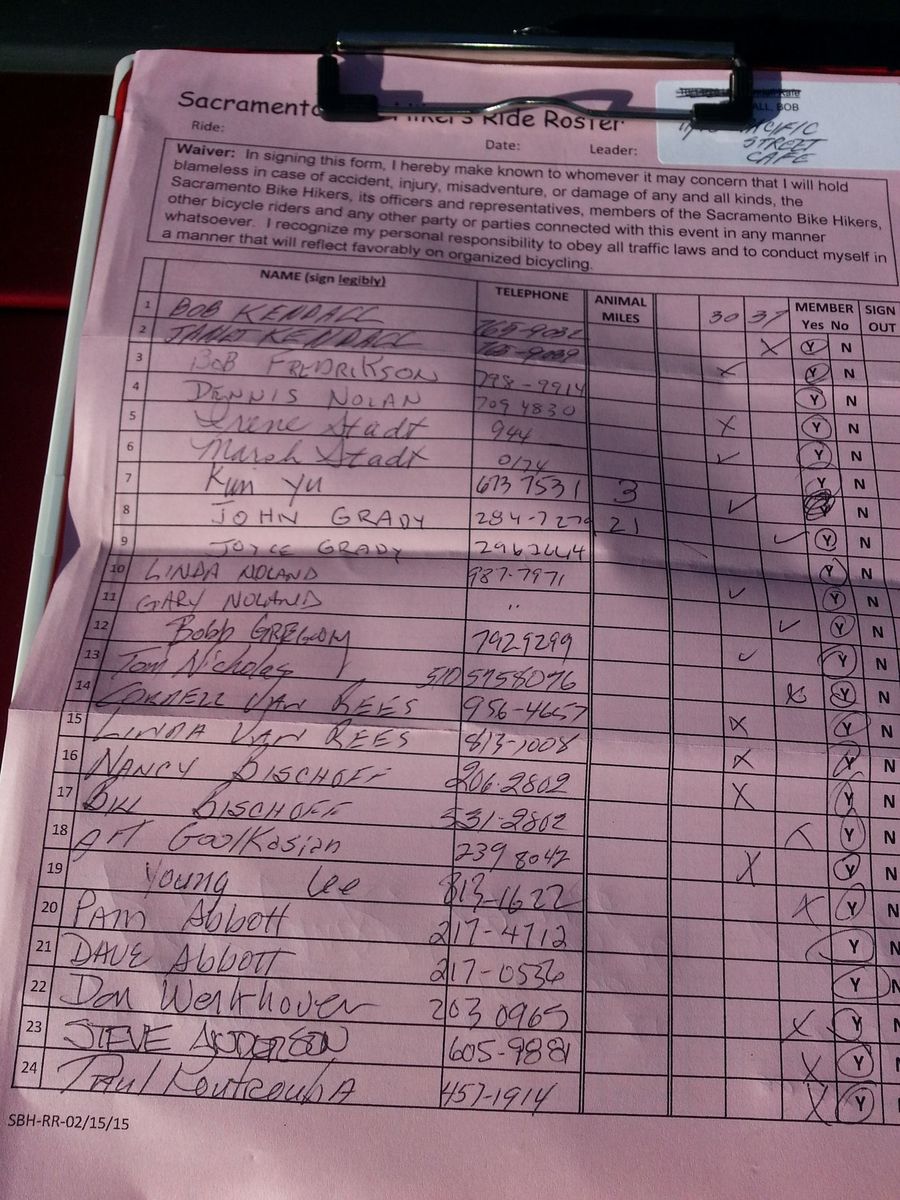 Sacramento Hikers Ride Roster
ALL, BOB
PACIFIC
STREET
CAFE
Ride: Date: Leader:
Waiver: In signing this form, I hereby make known to whomever it may concern that I will hold
blameless in case of accident, injury, misadventure, or damage of any and all kinds, the
Sacramento Bike Hikers, its officers and representatives, members of the Sacramento Bike Hikers,
other bicycle riders and any other party or parties connected with this event in any manner
whatsoever. I recognize my personal responsibility to obey all traffic laws and to conduct myself in
a manner that will reflect favorably on organized bicycling.
NAME (sign legibly) TELEPHONE ANIMAL MILES 30 37 MEMBER Yes No SIGN OUT
1 BOB KENDALL 765-9032 X Y N
2 JANET KENDALL 765-9039 Y N
3 BOB FREDRIKSON 798-9914 Y N
4 DENNIS NOLAN 709 4830 X Y N
5 Irene Stadt 944 Y N
6 Marsh Stadt 0174 Y N
7 Kim Yu 673 7531 3 Y N
8 JOHN GRADY 284-7279 21 Y N
9 JOYCE GRADY 2962644 Y N
10 LINDA NOLAND 987-7971 Y N
11 GARY NOLAND " Y N
12 Bobb GREGORY 7929299 Y N
13 Tom Nicholas 510 5758076 Y N
14 CORNELL VAN REES 956-4657 X Y N
15 LINDA VAN REES 813-1008 X Y N
16 NANCY BISCHOFF 206-2802 X Y N
17 BILL BISCHOFF 531-2802 Y N
18 Art Goolkasian 239 8042 X Y N
19 Young Lee 813-1622 X Y N
20 PAM Abbott 217-4712 Y N
21 DAVE Abbott 217-0536 Y N
22 Don Werkhoven 203 0965 X Y N
23 STEVE ANDERSON 605-9881 X Y N
24 Paul Koutrouba 457-1914 X Y N
SBH-RR-02/15/15